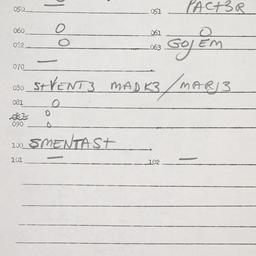 050 — 051 PACT3R
060 O 061 O
062 O 063 GOJEM
070 —
080 StVENT3 MADK3/MARJ3
081 O
082 O
090 O
100 SMENTASt
101 — 102 —